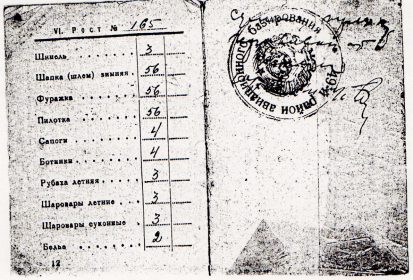 VI. Рост № 165
Шинель 3
Шапка (шлем) зимняя 56
Фуражка 56
Пилотка 56
Сапоги 4
Ботинки 4
Рубаха летняя 3
Шаровары летние 3
Шаровары суконные 3
Белье 2
12
район авиационного базирования